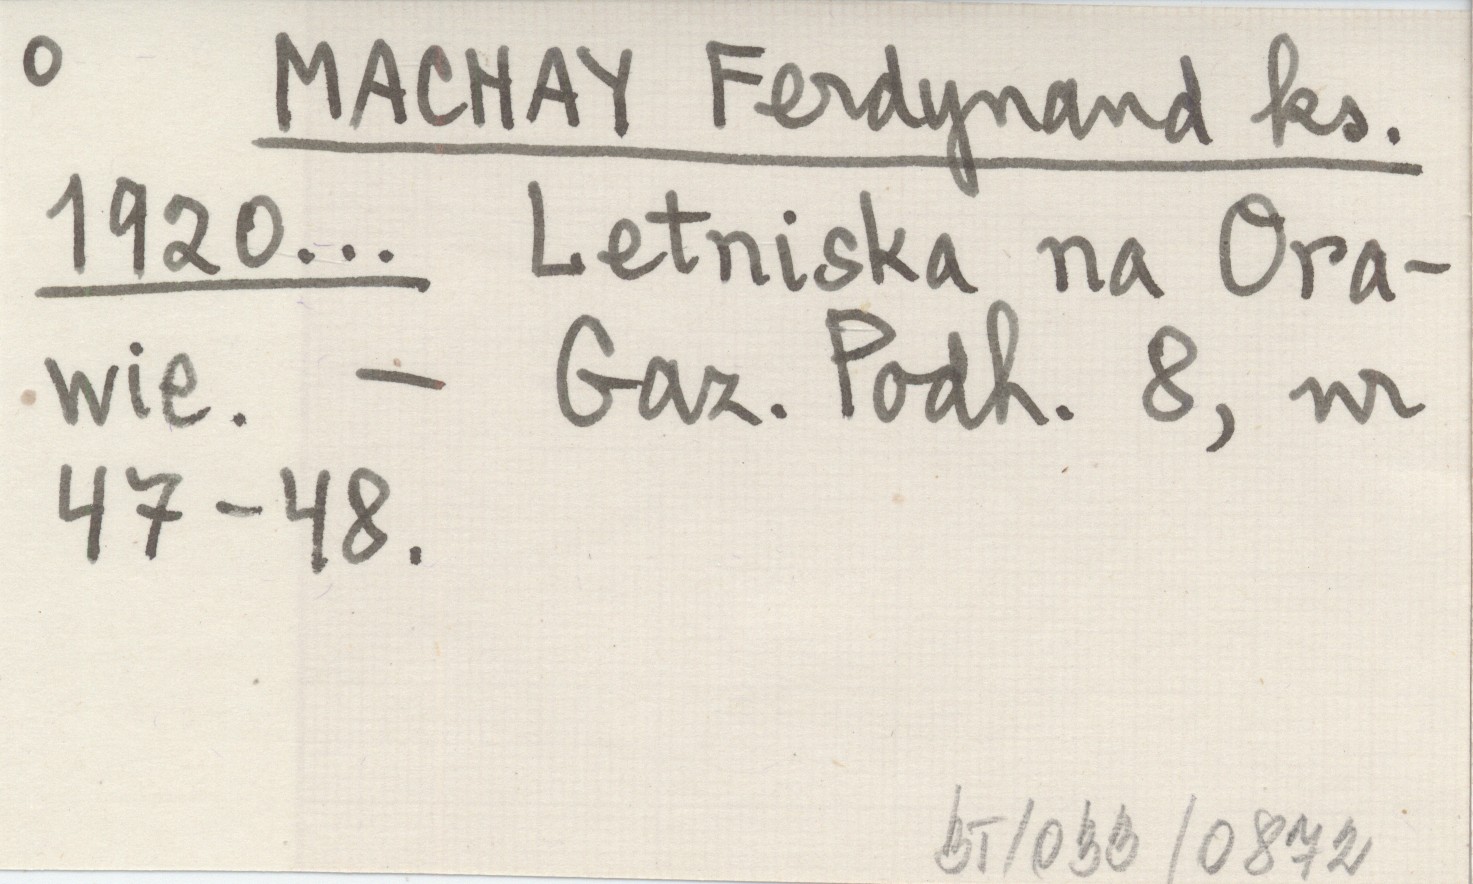 o MACHAY Ferdynand ks.
1920... Letniska na Ora-
wie. — Gaz. Podh. 8, nr
47-48.
/0872